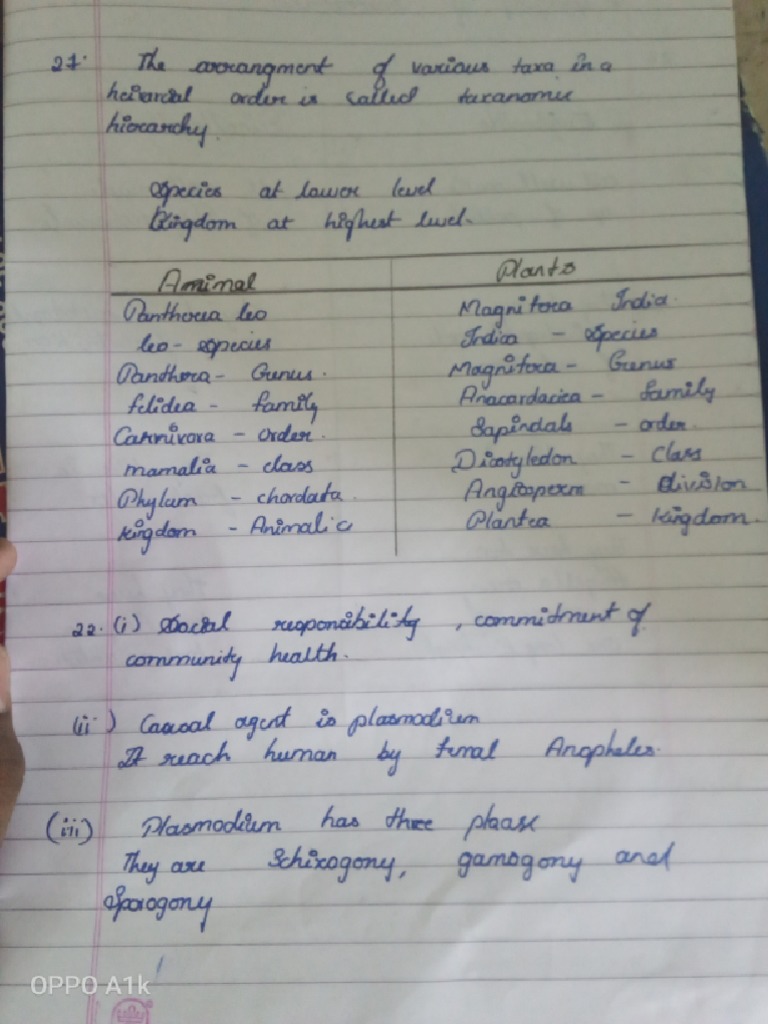 27. The arrangment of various taxa in a
heirarcial order is called taxanomic
hierarchy.
Species at lower level
Kingdom at highest level.
Animal Plants
Panthera leo Magnifora India.
leo - species Indica - Species
Panthera - Genus. Magnifora - Genus
felidea - family Anacardaciea - family
Carnivora - order. Sapindals - order.
mamalia - class Dicotyledon - Class
Phylum - chordata. Angiosperm - Division
kingdom - Animalic Plantea - kingdom.
22. (i) Social responsibility, commitment of
community health.
(ii) Causal agent is plasmodium
It reach human by femal Anopheles.
(iii) Plasmodium has three phase
They are Schizogony, gamogony and
Sporogony
OPPO A1k